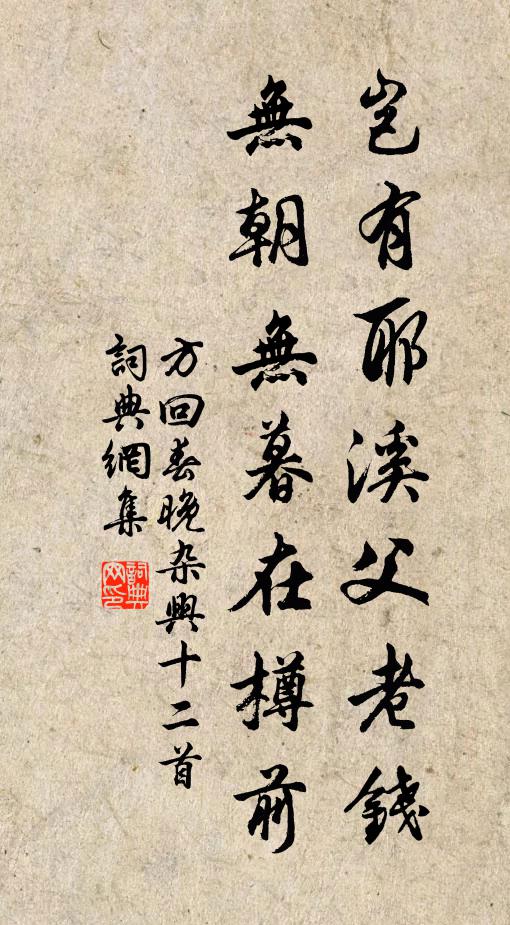 豈有耶溪父老錢
無朝無暮在樽前
方回春晚杂興十二首
詞典網集
詞典网印